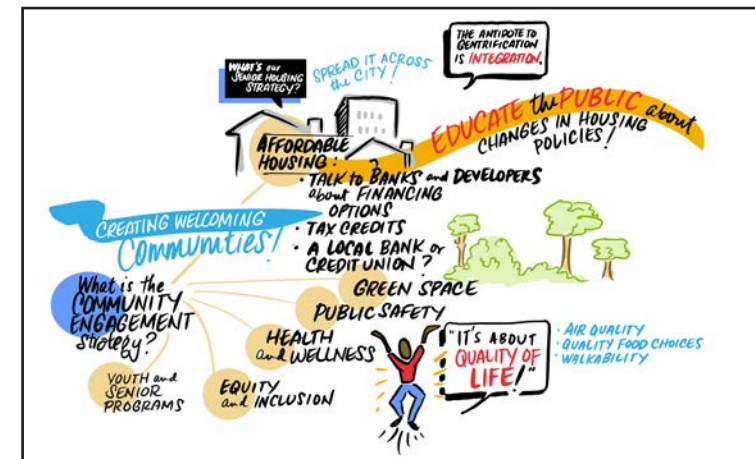 WHAT'S our
SENIOR HOUSING
STRATEGY?
SPREAD IT ACROSS
the CITY!
THE ANTIDOTE TO
GENTRIFICATION
IS INTEGRATION.
EDUCATE the PUBLIC about
CHANGES IN HOUSING
POLICIES!
AFFORDABLE
HOUSING:
• TALK TO BANKS and DEVELOPERS
about FINANCING
OPTIONS
• TAX CREDITS
• A LOCAL BANK or
CREDIT UNION?
CREATING WELCOMING
COMMUNITIES!
What is the
COMMUNITY
ENGAGEMENT
Strategy?
GREEN SPACE
PUBLIC SAFETY
HEALTH
and WELLNESS
EQUITY
and INCLUSION
YOUTH and
SENIOR
PROGRAMS
"IT'S ABOUT
QUALITY OF
LIFE!"
• AIR QUALITY
• QUALITY FOOD CHOICES
• WALKABILITY